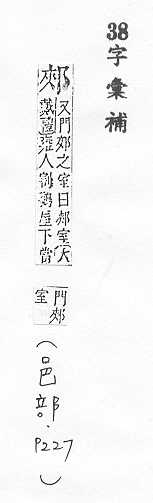 38字彙補
郟
又門郟之室曰郟室(大
戴禮雍人割雞屋下當
門郟
室
(邑部.P227)